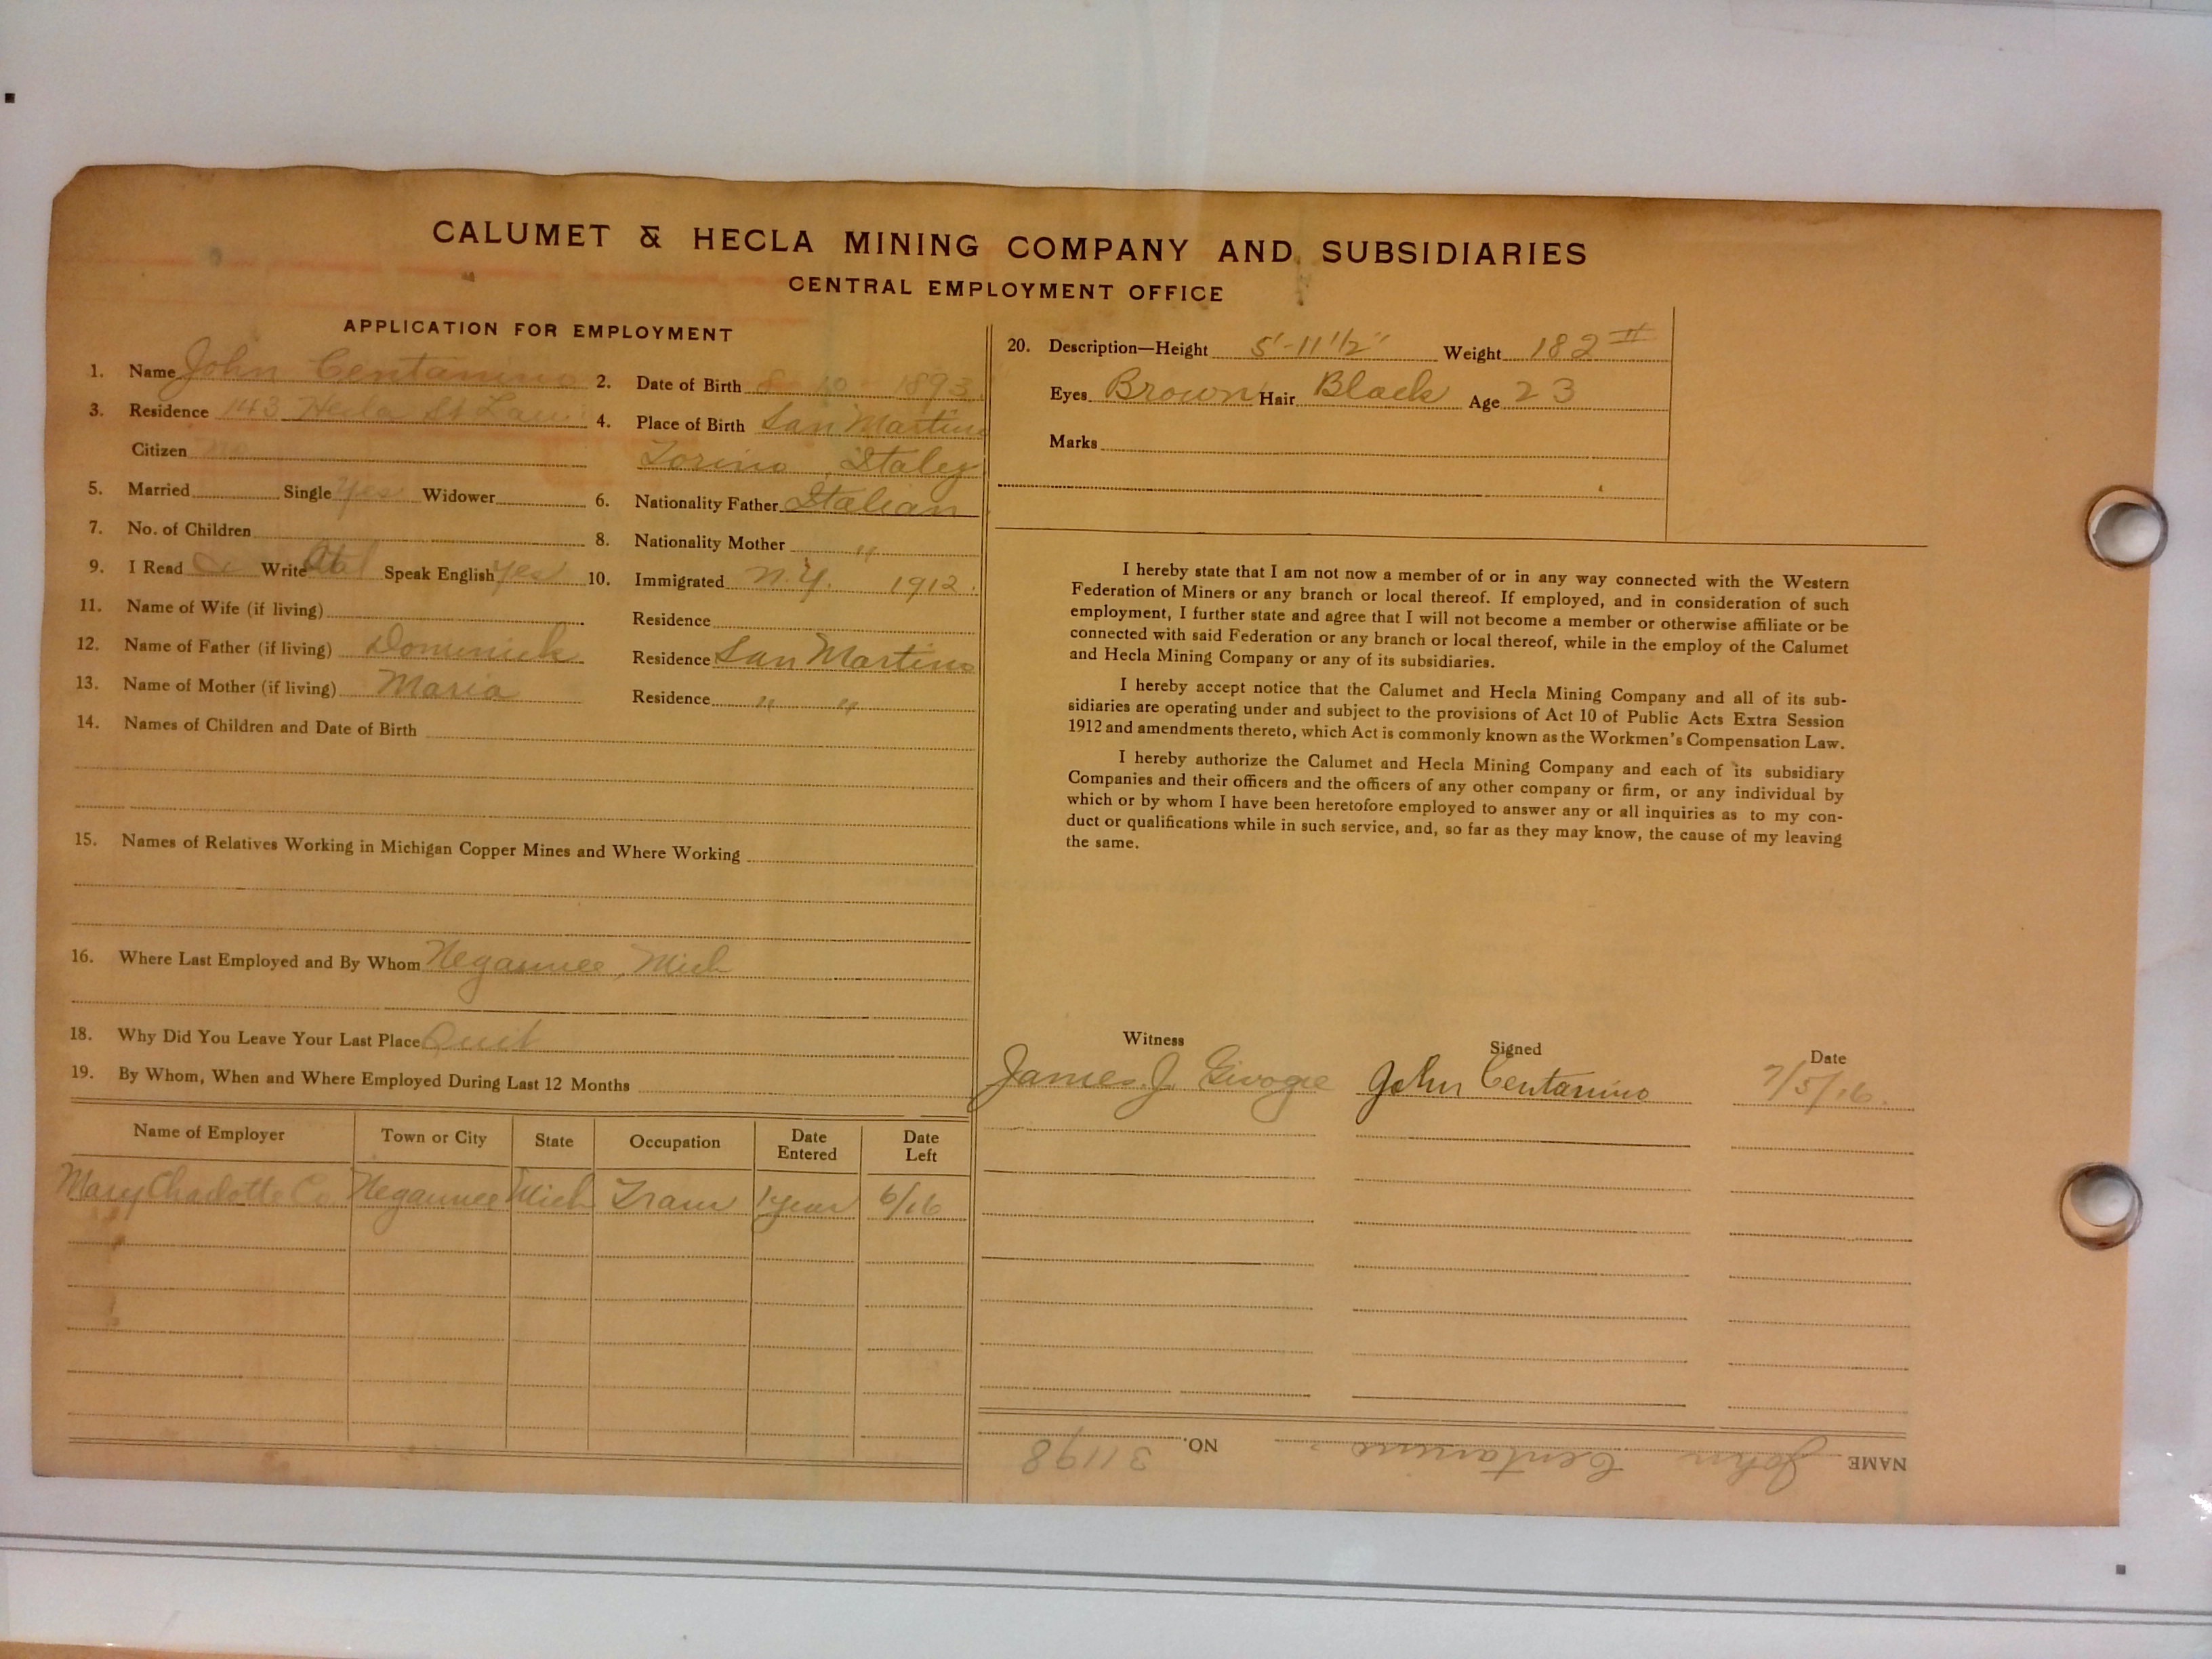 CALUMET & HECLA MINING COMPANY AND SUBSIDIARIES
CENTRAL EMPLOYMENT OFFICE
APPLICATION FOR EMPLOYMENT
1. Name John Centanino 2. Date of Birth 8 - 10 - 1893
3. Residence 143 Hecla St Laur 4. Place of Birth San Martino
Citizen no Torino, Italey
5. Married Single Yes Widower 6. Nationality Father Italian
7. No. of Children 8. Nationality Mother "
9. I Read Write Ital Speak English yes 10. Immigrated N.Y. 1912.
11. Name of Wife (if living) Residence
12. Name of Father (if living) Dominick Residence San Martino
13. Name of Mother (if living) Maria Residence " "
14. Names of Children and Date of Birth
15. Names of Relatives Working in Michigan Copper Mines and Where Working
16. Where Last Employed and By Whom Negaunee, Mich
18. Why Did You Leave Your Last Place Quit
19. By Whom, When and Where Employed During Last 12 Months
Name of Employer Town or City State Occupation Date Entered Date Left
Mary Chadotte Co. Negaunee Mich Tram 1 year 6/16
20. Description—Height 5'-11 1/2" Weight 182 #
Eyes Brown Hair Black Age 23
Marks
I hereby state that I am not now a member of or in any way connected with the Western
Federation of Miners or any branch or local thereof. If employed, and in consideration of such
employment, I further state and agree that I will not become a member or otherwise affiliate or be
connected with said Federation or any branch or local thereof, while in the employ of the Calumet
and Hecla Mining Company or any of its subsidiaries.
I hereby accept notice that the Calumet and Hecla Mining Company and all of its sub-
sidiaries are operating under and subject to the provisions of Act 10 of Public Acts Extra Session
1912 and amendments thereto, which Act is commonly known as the Workmen's Compensation Law.
I hereby authorize the Calumet and Hecla Mining Company and each of its subsidiary
Companies and their officers and the officers of any other company or firm, or any individual by
which or by whom I have been heretofore employed to answer any or all inquiries as to my con-
duct or qualifications while in such service, and, so far as they may know, the cause of my leaving
the same.
Witness Signed Date
James J. John Centanino 7/5/16.
NAME John Centanino. NO. 31198